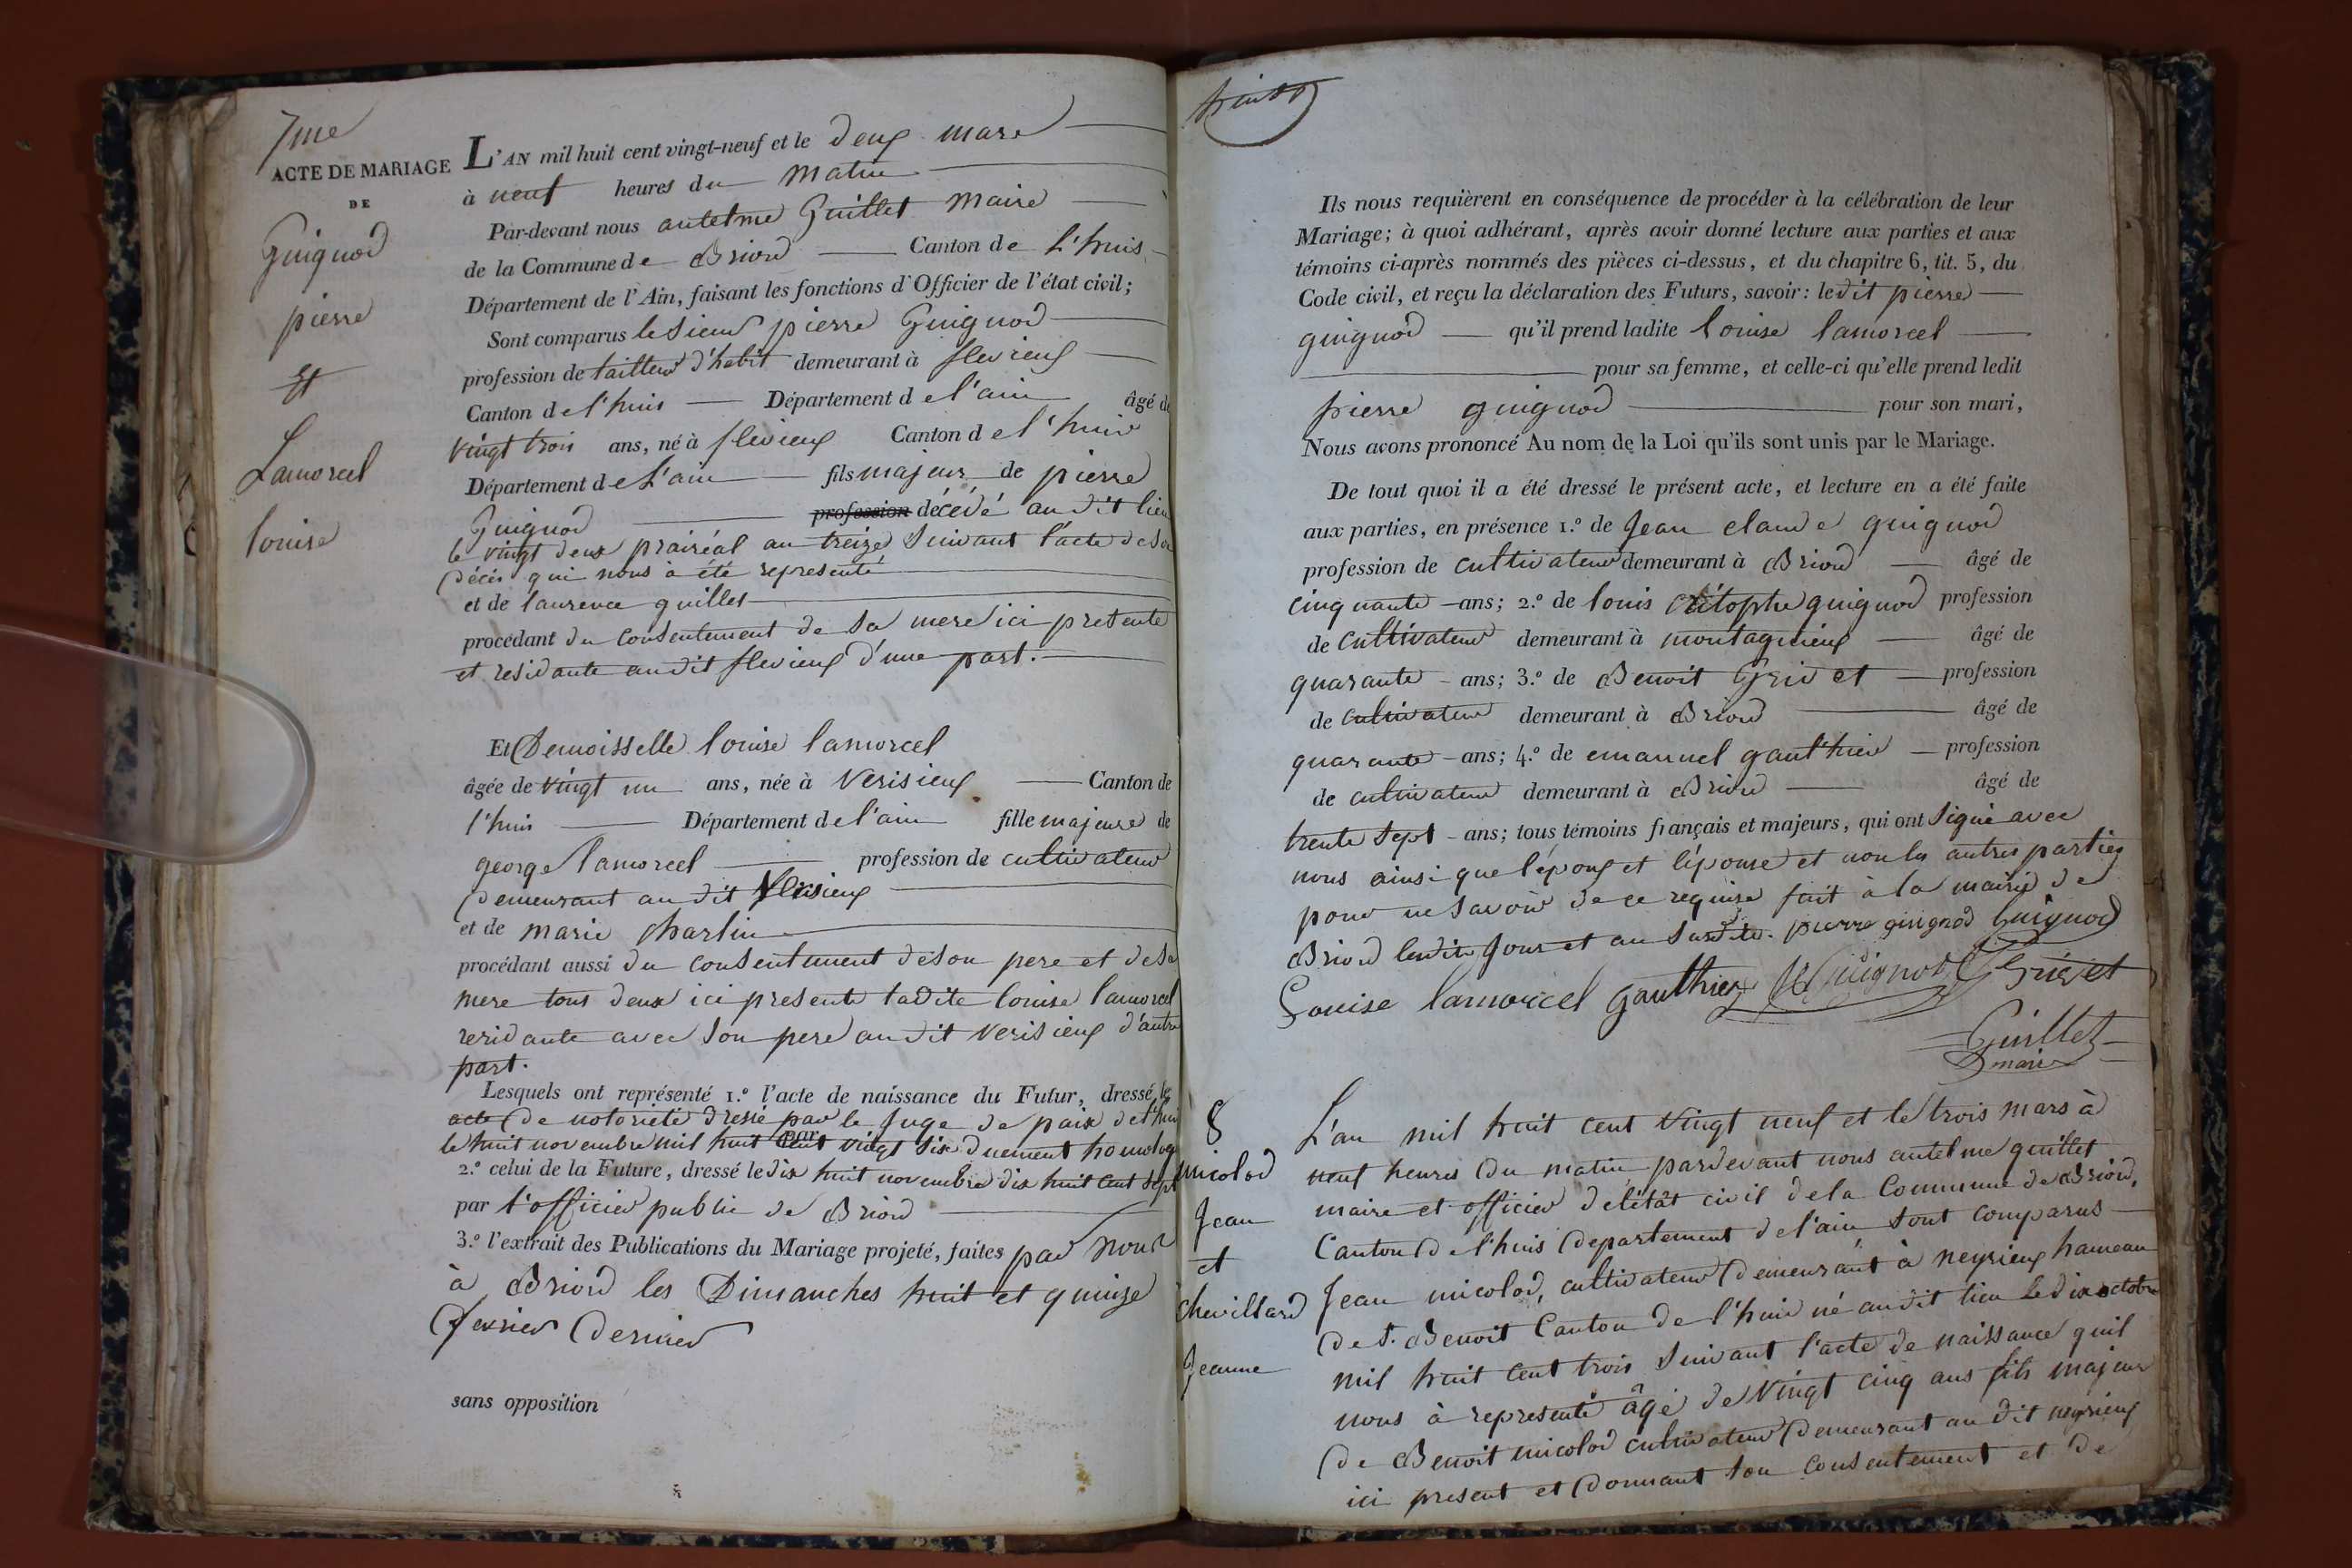 7me
ACTE DE MARIAGE
DE
Guignod
pierre
Et
Lamorcel
louise
L'AN mil huit cent vingt-neuf et le deux mars
à neuf heures du matin
Par-devant nous antelme Guillet maire
de la Commune de Briord Canton de L'huis
Département de l'Ain, faisant les fonctions d'Officier de l'état civil;
Sont comparus le sieur pierre Guignod
profession de tailleur d'habit demeurant à flevieux
Canton de l'huis Département de l'ain âgé de
vingt trois ans, né à flevieux Canton de l'huis
Département de L'ain fils majeur de pierre
Guignod profession décédé audit lieu
le vingt deux prairéal an treize suivant l'acte de son
décès qui nous à été representé
et de laurence guillet
procédant du consentement de sa mere ici presente
et residante audit flevieux d'une part.
Et Demoisselle louise lamorcel
âgée de vingt un ans, née à Verisieux Canton de
l'huis Département de l'ain fille majeure de
george lamorcel profession de cultivateur
demeurant audit Verisieux
et de marie charlin
procédant aussi du consentement de son pere et de sa
mere tous deux ici presente ladite louise lamorcel
residante avec son pere audit verisieux d'autre
part.
Lesquels ont représenté 1.º l'acte de naissance du Futur, dressé le
acte de notorieté dressé par le Juge de paix de l'huis
le huit novembre mil huit cent vingt six duement homologué
par
2.º celui de la Future, dressé le dix huit novembre dix huit cent sept
par l'officier public de Briord
3.º l'extrait des Publications du Mariage projeté, faites par nous
à Briord les Dimanches huit et quinze
fevrier dernier
sans opposition
Ils nous requièrent en conséquence de procéder à la célébration de leur
Mariage; à quoi adhérant, après avoir donné lecture aux parties et aux
témoins ci-après nommés des pièces ci-dessus, et du chapitre 6, tit. 5, du
Code civil, et reçu la déclaration des Futurs, savoir: ledit pierre
guignod qu'il prend ladite louise lamorcel
pour sa femme, et celle-ci qu'elle prend ledit
pierre guignod pour son mari,
Nous avons prononcé Au nom de la Loi qu'ils sont unis par le Mariage.
De tout quoi il a été dressé le présent acte, et lecture en a été faite
aux parties, en présence 1.º de Jean claude guignod
profession de cultivateur demeurant à Briord âgé de
cinquante ans; 2.º de louis critophe guignod profession
de cultivateur demeurant à montagnieux âgé de
quarante ans; 3.º de Benoit Grivet profession
de cultivateur demeurant à Briord âgé de
quarante ans; 4.º de emanuel gaut'hier profession
de cultivateur demeurant à Briord âgé de
trente sept ans; tous témoins français et majeurs, qui ont signé avec
nous ainsi que l'époux et l'épouse et non les autres parties
pour ne savoir de ce requise fait à la mairie de
Briord lesdits jour et an susdits. pierre guignod Guignod
Louise lamorcel Gauthier Guignod Grivet
Guillet
maire
8
micolod
Jean
et
Chevillard
Jeanne
L'an mil huit cent vingt neuf et le trois mars à
neuf heures du matin pardevant nous antelme guillet
maire et officier de l'état civil de la Commune de Briord,
Canton de l'huis département de l'ain, sont comparus
Jean micolod, cultivateur demeurant à neyrieux hameau
de St. Benoit Canton de l'huis né audit lieu le dix octobre
mil huit cent trois suivant l'acte de naissance quil
nous à representé âgé de vingt cinq ans fils majeur
de Benoit micolod cultivateur demeurant audit neyrieux
ici present et donnant son consentement et de